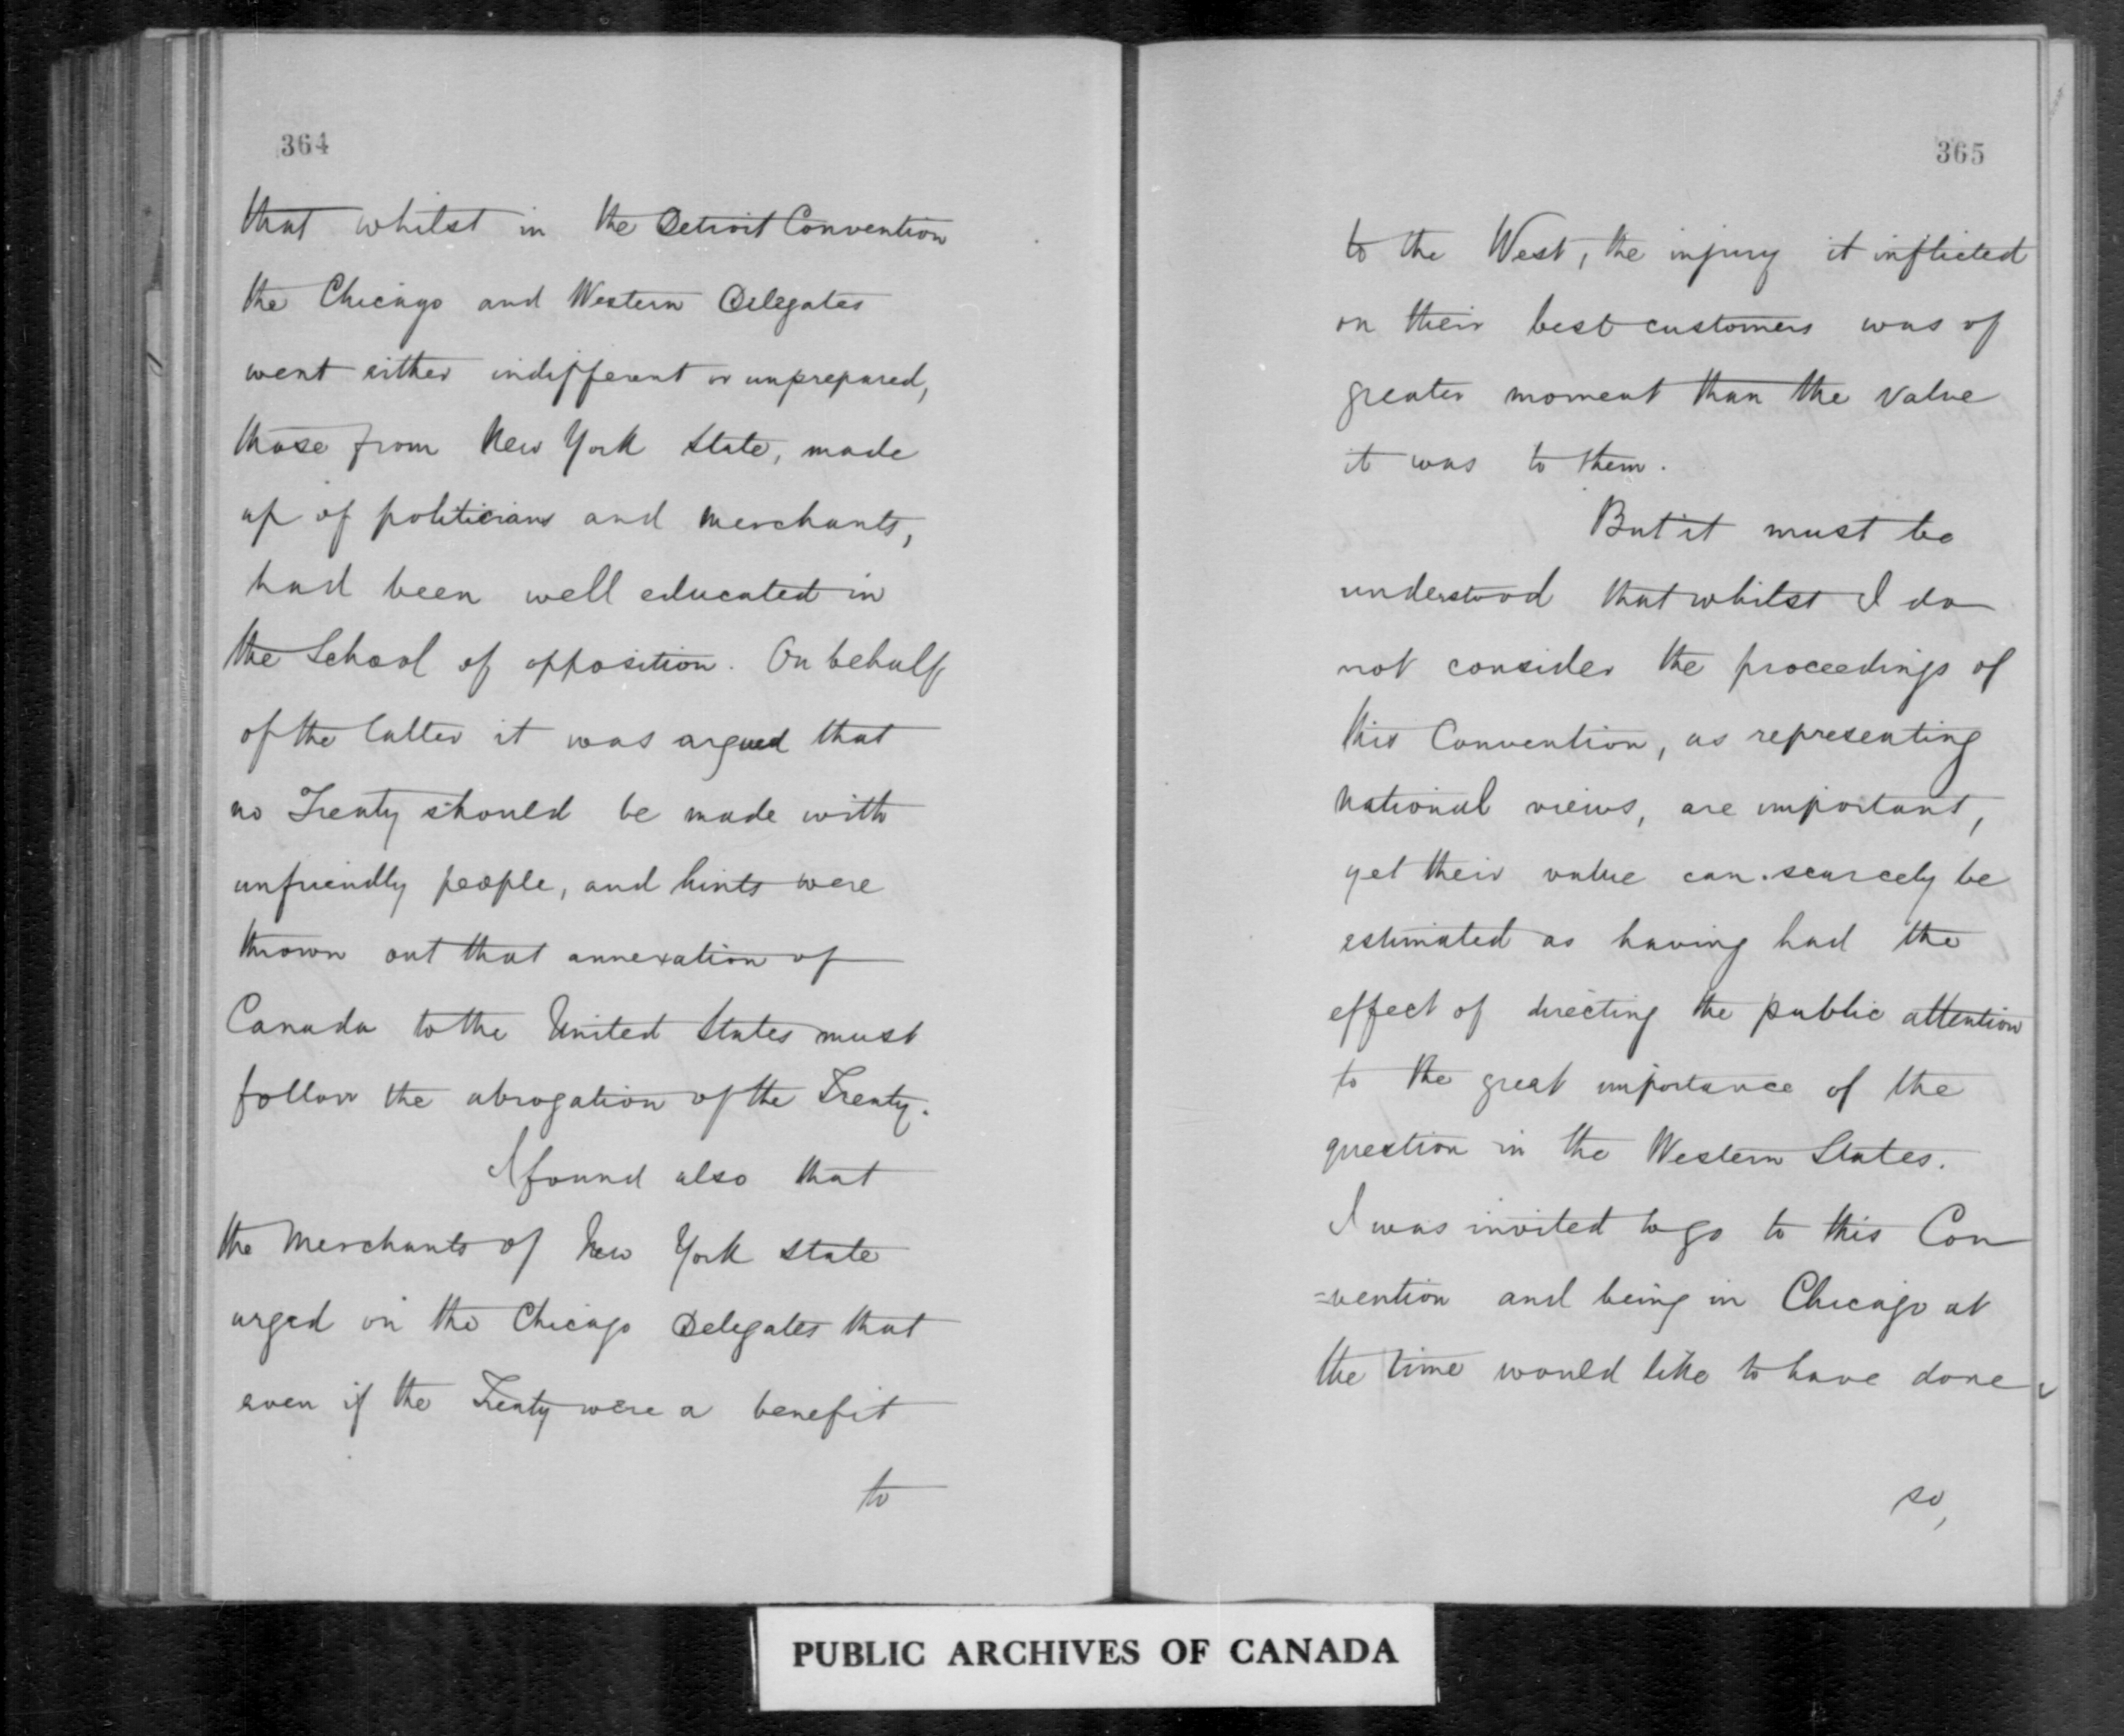 364
that whilst in the Detroit Convention
the Chicago and Western Delegates
went either indifferent or unprepared,
those from New York State, made
up of politicians and Merchants,
had been well educated in
the School of opposition. On behalf
of the latter it was argued that
no Treaty should be made with
unfriendly people, and hints were
thrown out that annexation of
Canada to the United States must
follow the abrogation of the Treaty.
I found also that
the Merchants of New York State
urged on the Chicago Delegates that
even if the Treaty were a benefit
to
365
to the West, the injury it inflicted
on their best customers was of
greater moment than the value
it was to them.
But it must be
understood that whilst I do
not consider the proceedings of
this Convention, as representing
national views, are important,
yet their value can scarcely be
estimated as having had the
effect of directing the public attention
to the great importance of the
question in the Western States.
I was invited to go to this Con
=vention and being in Chicago at
the time would like to have done
so,
PUBLIC ARCHIVES OF CANADA